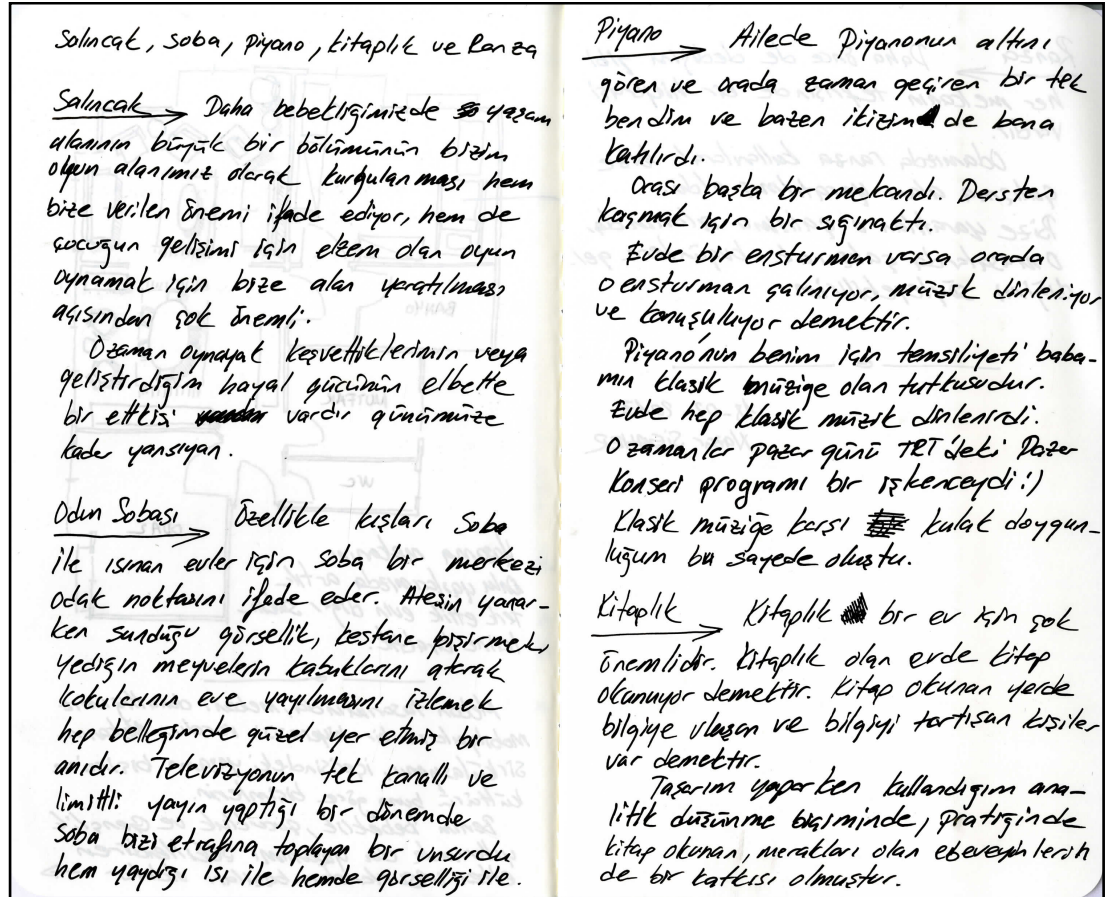 Salıncak, soba, piyano, kitaplık ve Ranza
Salıncak → Daha bebekliğimizde yaşam
alanının büyük bir bölümünün bizim
oyun alanımız olarak kurgulanması hem
bize verilen önemi ifade ediyor, hem de
çocuğun gelişimi için elzem olan oyun
oynamak için bize alan yaratılması
açısından çok önemli.
Ozaman oynayak keşvettiklerimin veya
geliştirdiğim hayal gücünün elbette
bir etkisi vardır günümüze
kadar yansıyan.
Odun Sobası → Özellikle kışları Soba
ile ısınan evler için soba bir merkezi
odak noktasını ifade eder. Ateşin yanar-
ken sunduğu görsellik, kestane pişirmek,
yediğin meyvelerin kabuklarını atarak
kokularının eve yayılmasını izlemek
hep belleğimde güzel yer etmiş bir
anıdır. Televizyonun tek kanallı ve
limitli yayın yaptığı bir dönemde
soba bizi etrafına toplayan bir unsurdu
hem yaydığı ısı ile hemde görselliği ile.
Piyano → Ailede Piyanonun altını
gören ve orada zaman geçiren bir tek
bendim ve bazen ikizim de bana
katılırdı.
Orası başka bir mekandı. Dersten
kaçmak için bir sığınaktı.
Evde bir ensturmen varsa orada
o ensturman çalınıyor, müzik dinleniyor
ve konuşuluyor demektir.
Piyano'nun benim için temsiliyeti baba-
mın klasik müziğe olan tutkusudur.
Evde hep klasik müzik dinlenirdi.
O zamanlar pazar günü TRT'deki Pazar
Konseri programı bir işkenceydi :)
Klasik müziğe karşı kulak doygun-
luğum bu sayede oluştu.
Kitaplık → Kitaplık bir ev için çok
önemlidir. Kitaplık olan evde kitap
okunuyor demektir. Kitap okunan yerde
bilgiye ulaşan ve bilgiyi tartışan kişiler
var demektir.
Tasarım yaparken kullandığım ana-
litik düşünme biçiminde, pratiğinde
kitap okunan, merakları olan ebeveynlerin
de bir katkısı olmuştur.